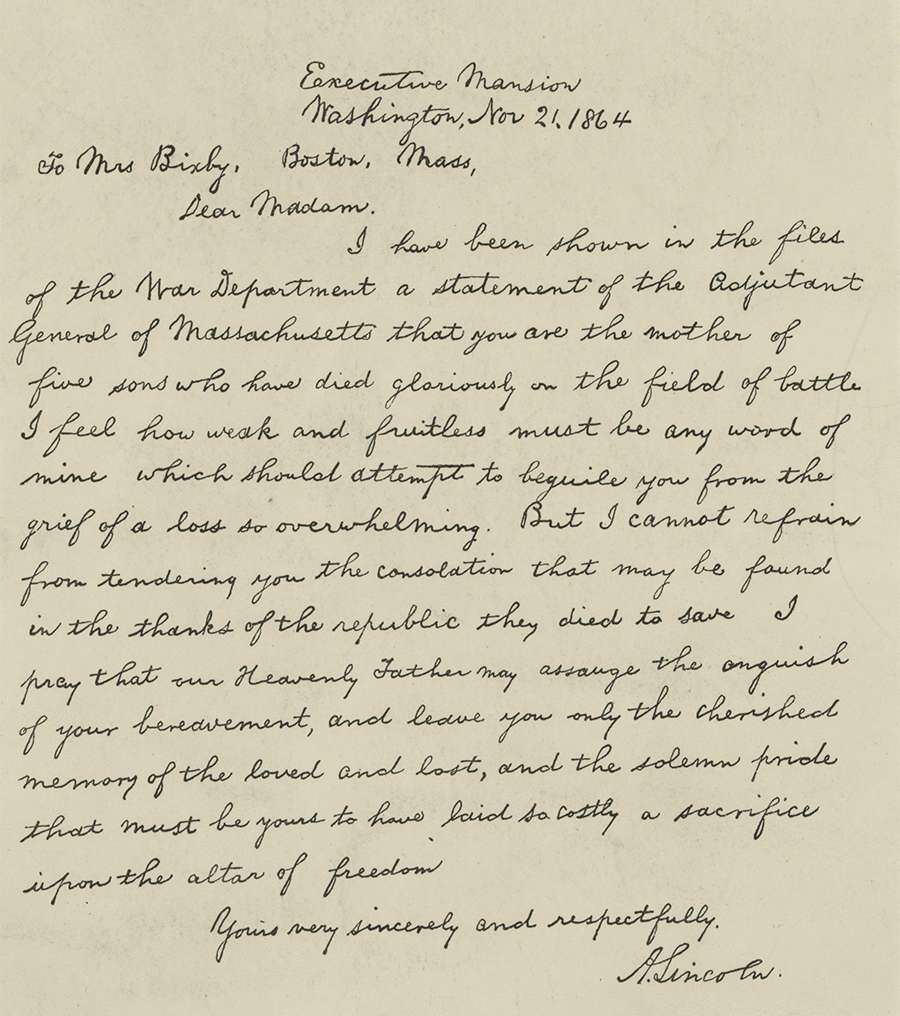 Executive Mansion
Washington, Nov 21, 1864
To Mrs Bixby, Boston, Mass,
Dear Madam.
I have been shown in the files
of the War Department a statement of the Adjutant
General of Massachusetts that you are the mother of
five sons who have died gloriously on the field of battle
I feel how weak and fruitless must be any word of
mine which should attempt to beguile you from the
grief of a loss so overwhelming. But I cannot refrain
from tendering you the consolation that may be found
in the thanks of the republic they died to save I
pray that our Heavenly Father may assauge the anguish
of your bereavement, and leave you only the cherished
memory of the loved and lost, and the solemn pride
that must be yours to have laid so costly a sacrifice
upon the altar of freedom
Yours very sincerely and respectfully.
A. Lincoln.